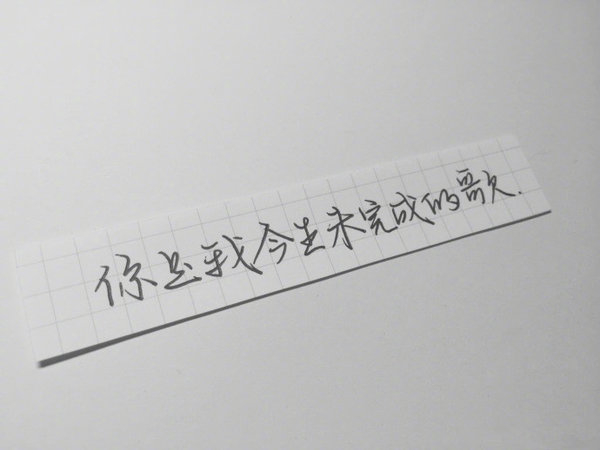 你是我今生未完成的歌.